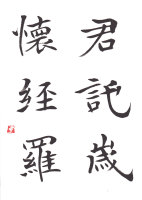 君託歳
懐経羅